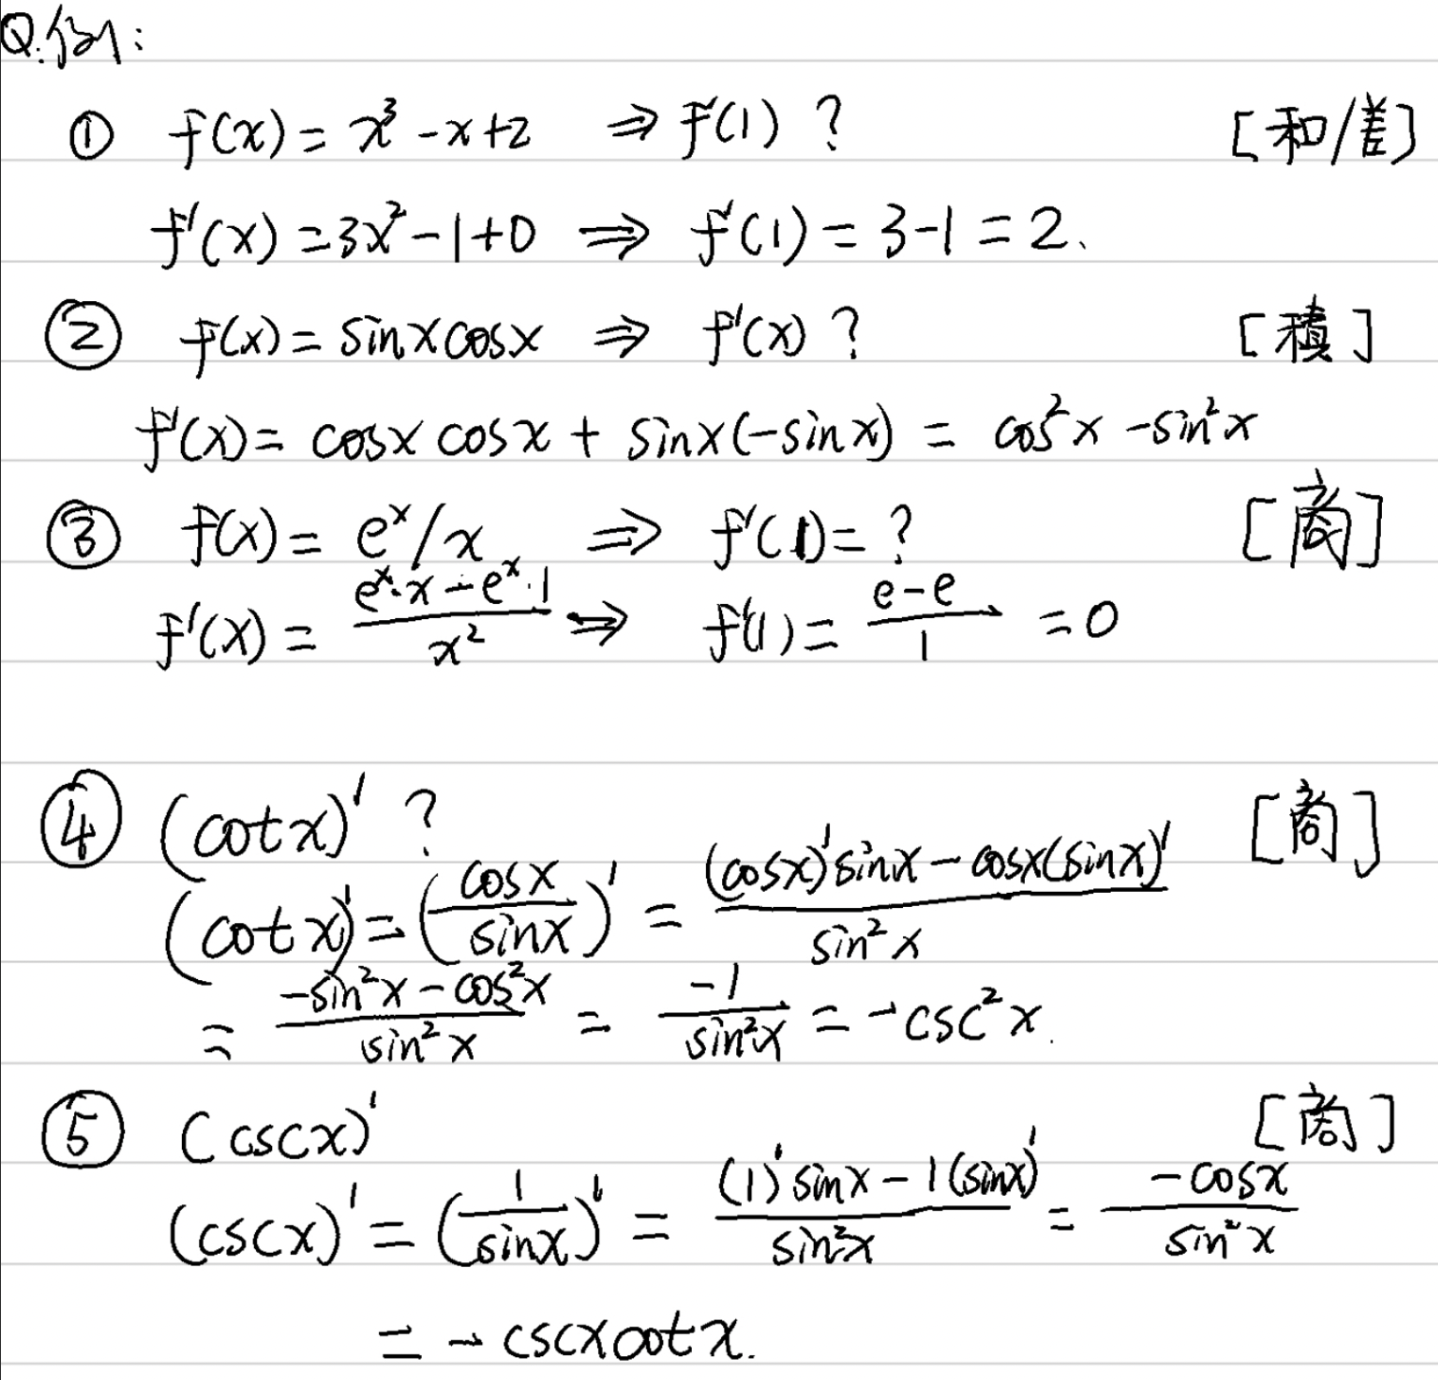 Q.例:
① f(x) = x³ - x + 2 ⇒ f'(1) ? [和/差]
f'(x) = 3x² - 1 + 0 ⇒ f'(1) = 3 - 1 = 2.
② f(x) = sinx cosx ⇒ f'(x) ? [積]
f'(x) = cosx cosx + sinx(-sinx) = cos²x - sin²x
③ f(x) = eˣ/x ⇒ f'(1) = ? [商]
f'(x) = (eˣ·x - eˣ·1)/x² ⇒ f'(1) = (e-e)/1 = 0
④ (cotx)' ? [商]
(cotx)' = (cosx/sinx)' = ((cosx)'sinx - cosx(sinx)')/sin²x
= (-sin²x - cos²x)/sin²x = -1/sin²x = -csc²x.
⑤ (cscx)' [商]
(cscx)' = (1/sinx)' = ((1)'sinx - 1(sinx)')/sin²x = -cosx/sin²x
= -cscxcotx.